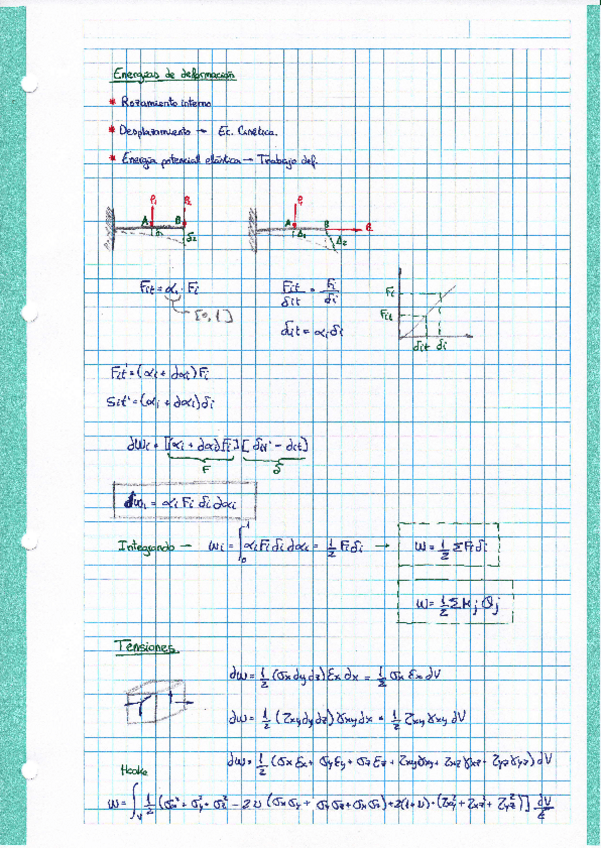 Energías de deformación
* Rozamiento interno
* Desplazamiento → Ec. Cinética.
* Energía potencial elástica → Trabajo def.
P₁ P₂ A B δ₁ δ₂
P₁ A B P₂ Δ₁ Δ₂
Fit = αi · Fi
[0,1]
Fit/δit = Fi/δi
δit = αi δi
Fi Fit δit δi
Fit' = (αi + dαi) Fi
δit' = (αi + dαi) δi
dWi = [(αi + dαi) Fi] [δit' - δit]
F δ
dWi = αi Fi δi dαi
Integrando → Wi = ∫₀¹ αi Fi δi dαi = 1/2 Fi δi → W = 1/2 Σ Fi δi
W = 1/2 Σ Mj θj
Tensiones
dW = 1/2 (σx dy dz) εx dx = 1/2 σx εx dV
dW = 1/2 (τxy dy dz) γxy dx = 1/2 τxy γxy dV
dW = 1/2 (σx εx + σy εy + σz εz + τxy γxy + τxz γxz + τyz γyz) dV
Hooke
W = ∫v 1/2 (σx² + σy² + σz² - 2υ (σx σy + σy σz + σx σz) + 2(1+υ) · (τxy² + τxz² + τyz²)] dV/E